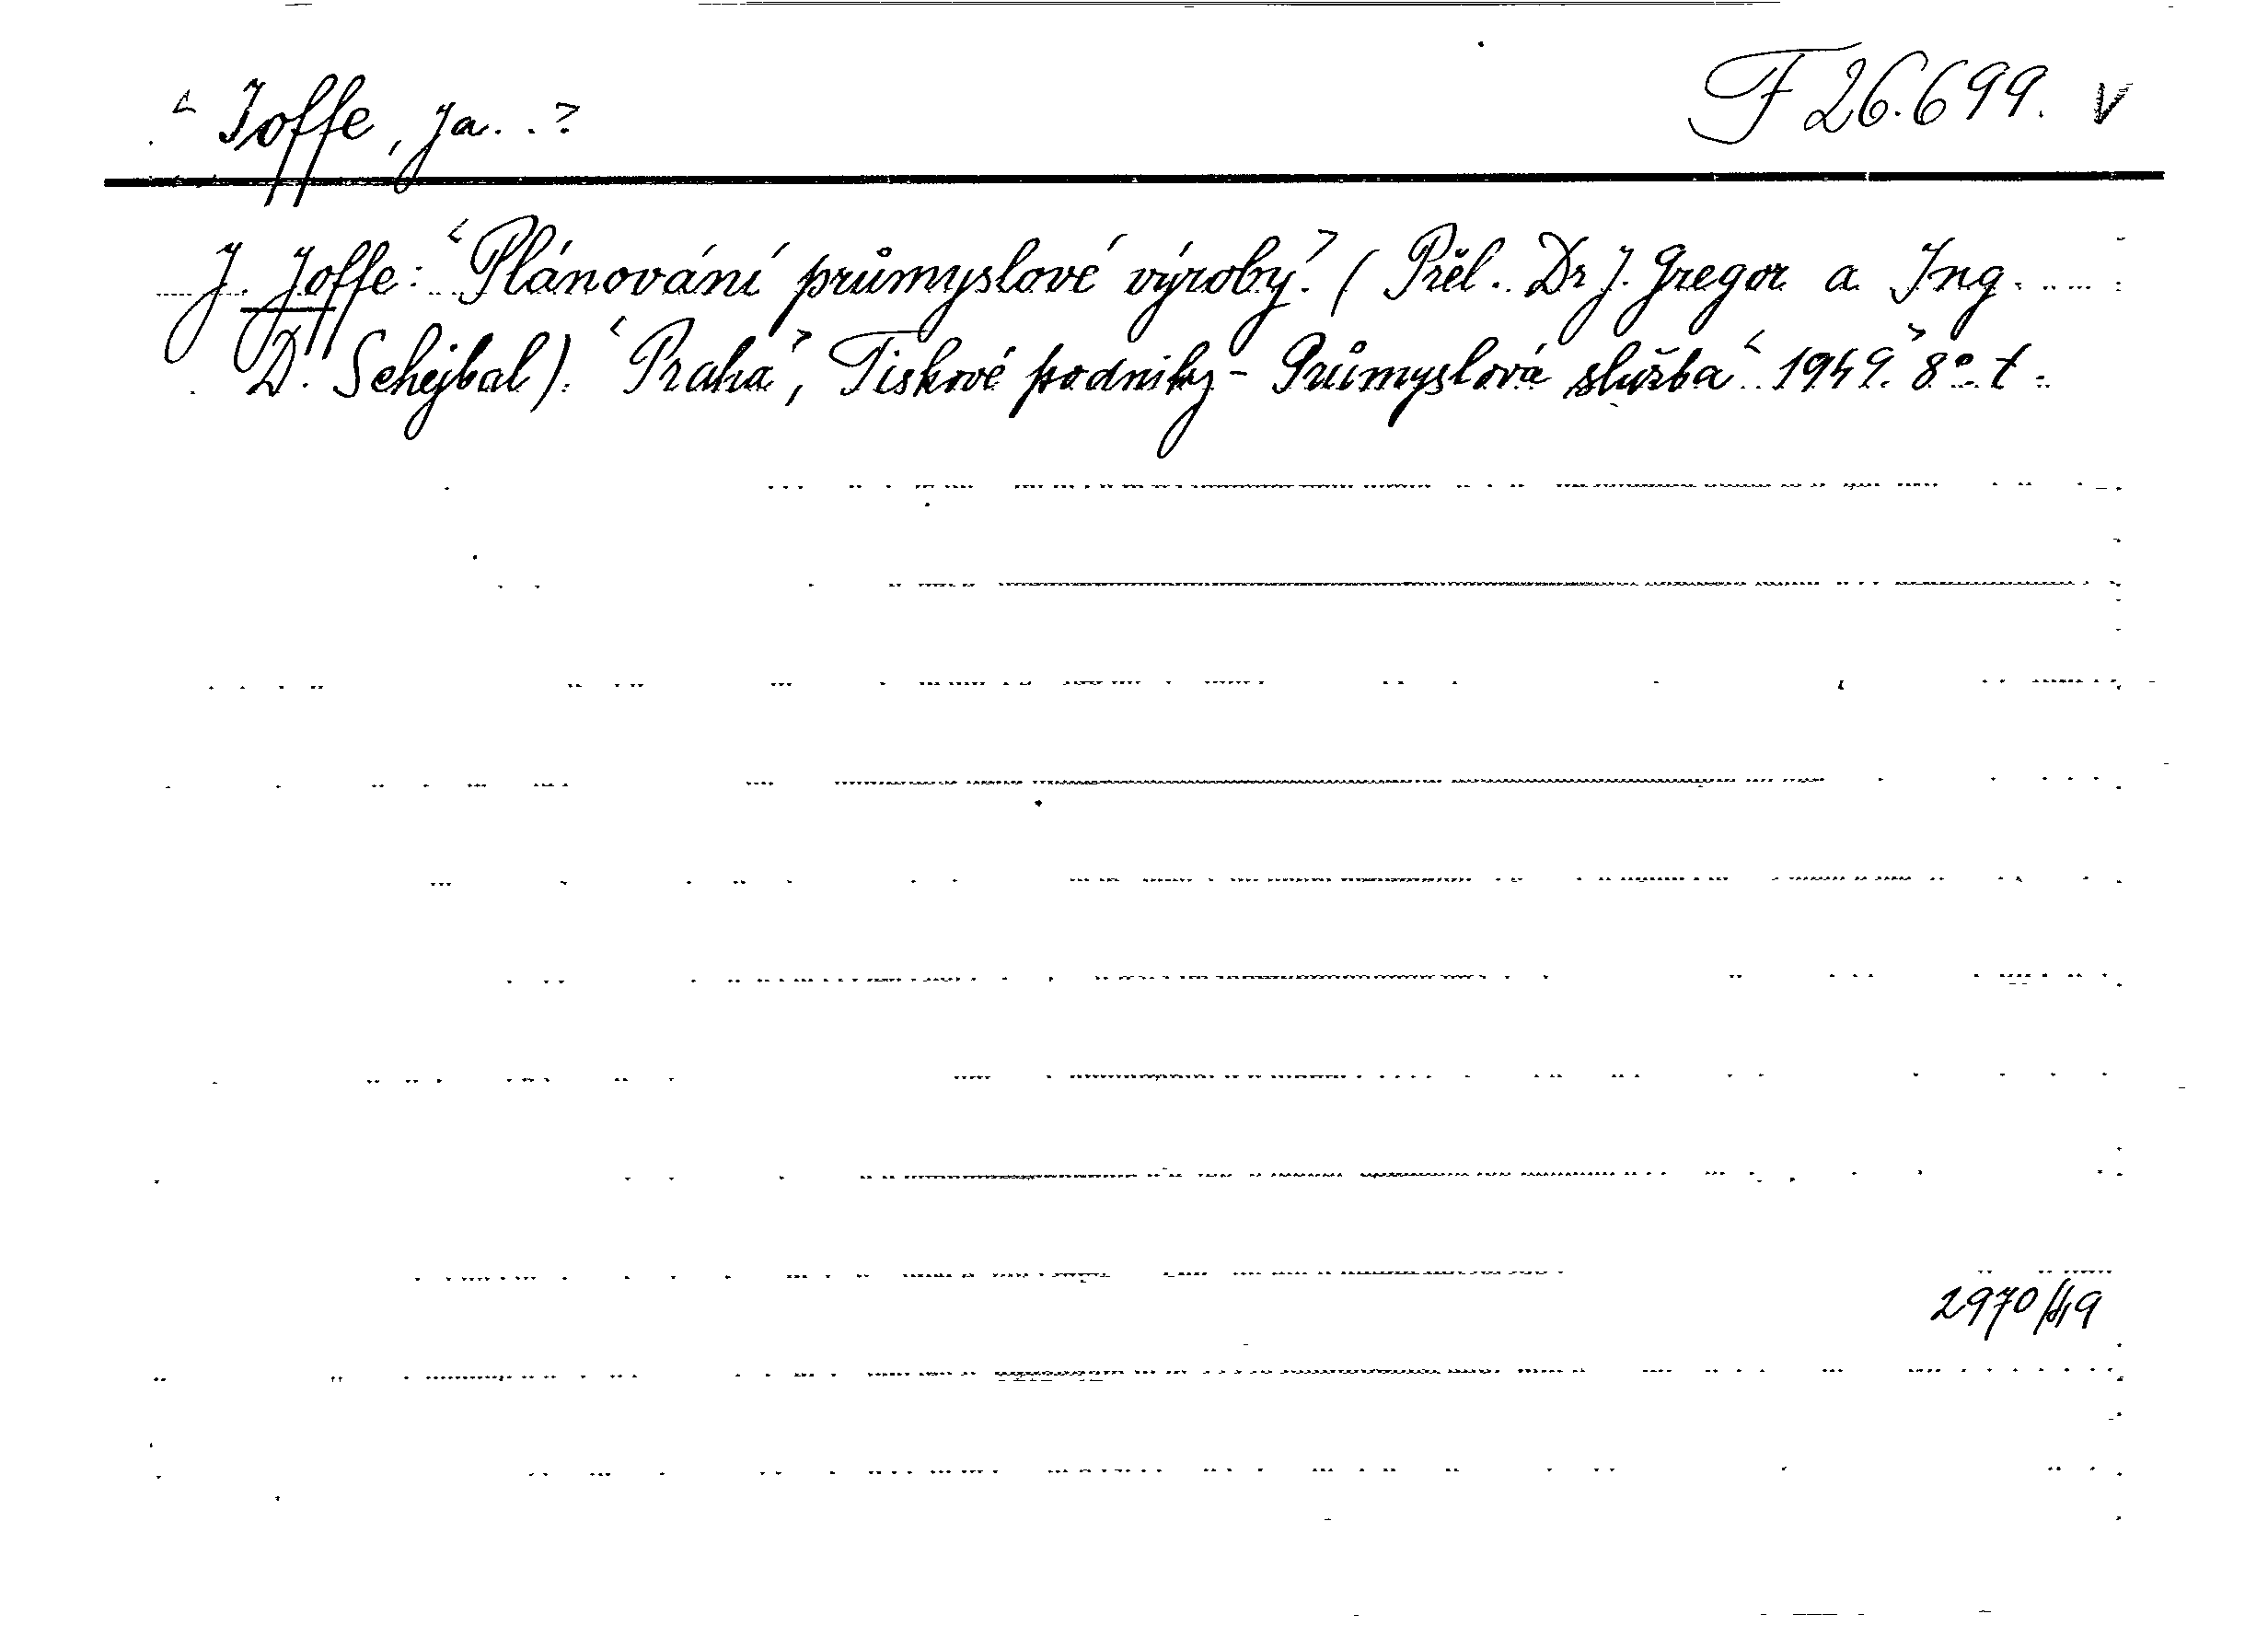 <Ioffe, Ja..>
F 26.699. V
J. Joffe: <Plánování průmyslové výroby.> (Přel. Dr J. Gregor a Ing.
D. Schejbal). <Praha>, Tiskové podniky - Průmyslová služba <1949.> 8° t.
2970/49